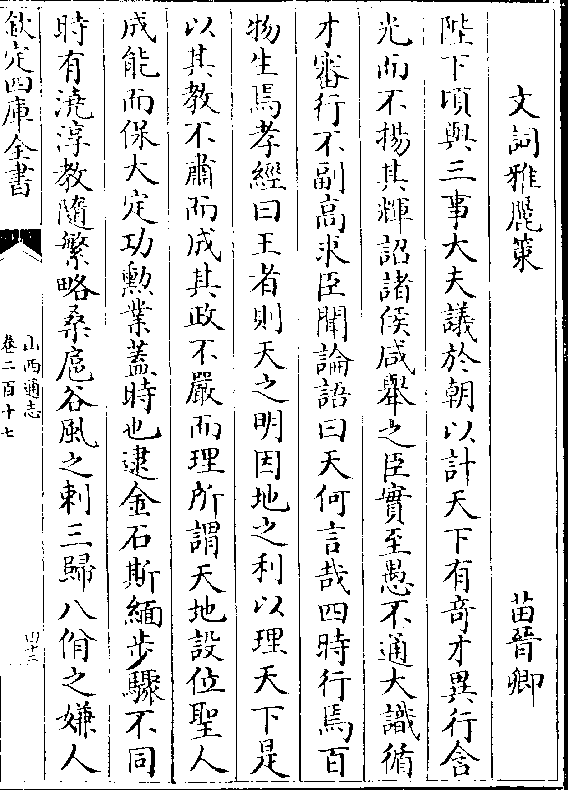 文詞雅麗策 苗晉卿
陛下頃與三事大夫議於朝以計天下有竒才異行含
光而不揚其輝詔諸侯咸舉之臣實至愚不通大識循
才審行不副高求臣聞論語曰天何言哉四時行焉百
物生焉孝經曰王者則天之明因地之利以理天下是
以其教不肅而成其政不嚴而理所謂天地設位聖人
成能而保大定功勲業蓋時也逮金石斯緬步驟不同
時有澆淳教隨繁略桑扈谷風之刺三歸八佾之嫌人
欽定四庫全書
山西通志
卷二百十七
四十三